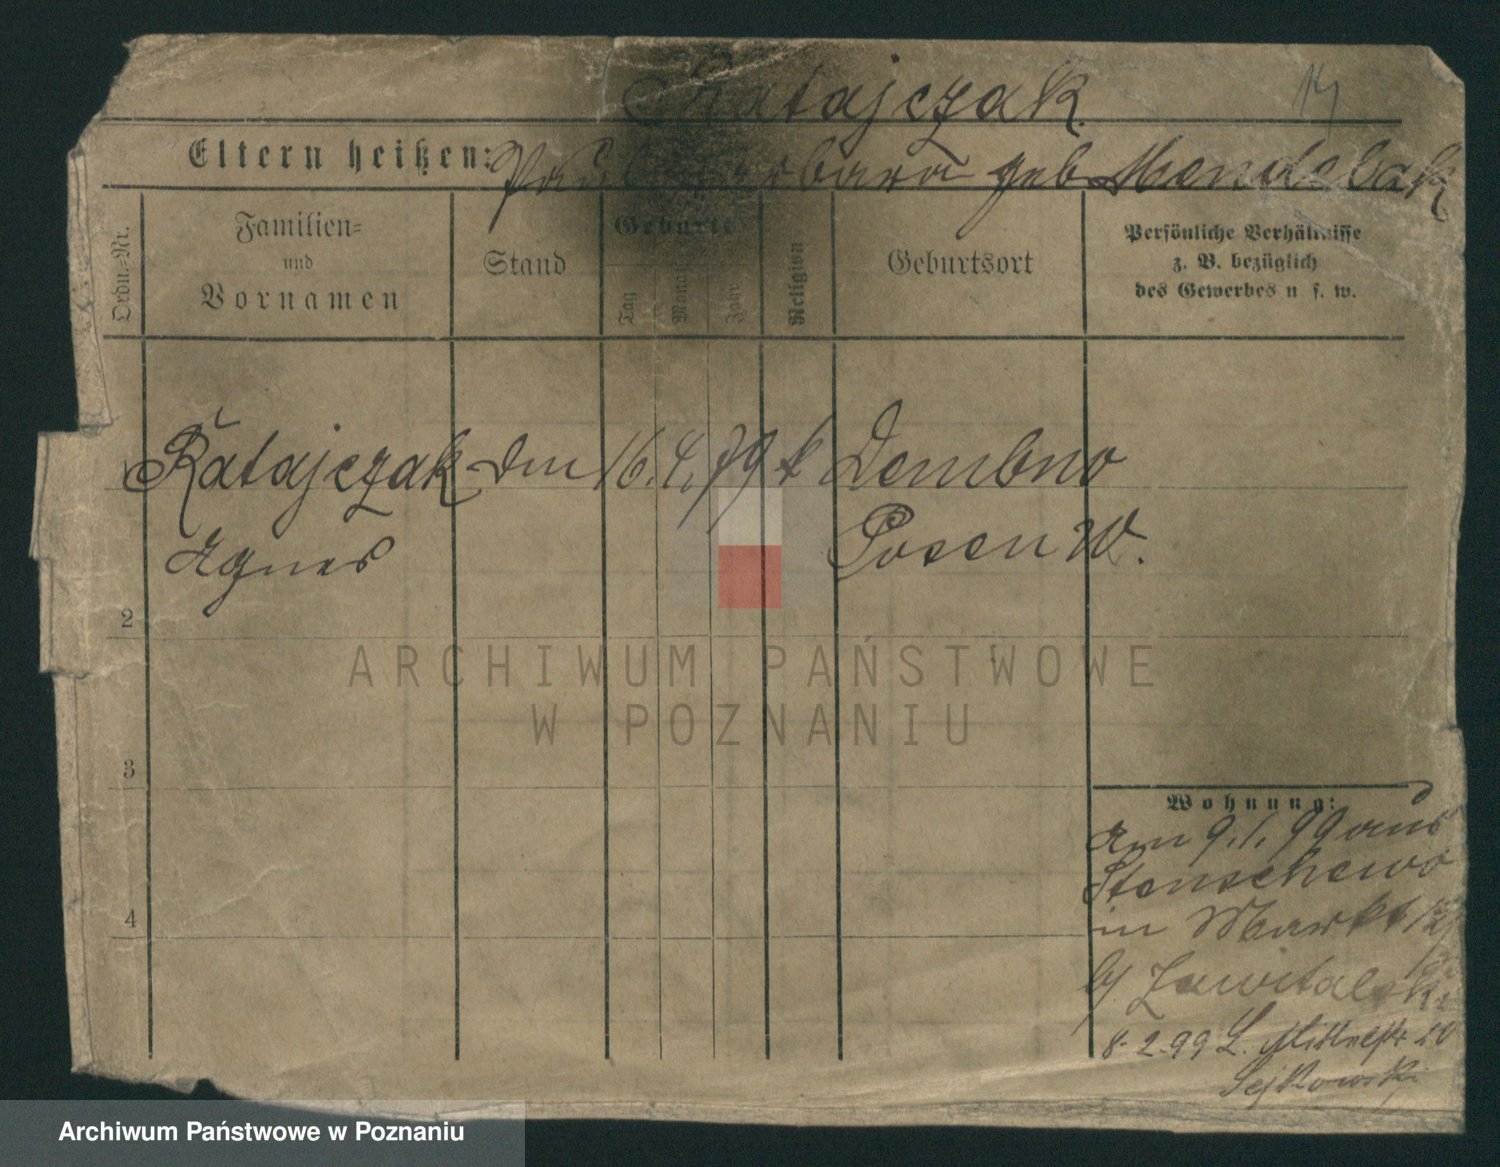 Ratajczak
Eltern heißen: Paul Barbara geb Mendelak
Ordn.-Nr.
Familien-
und
Vornamen
Stand
Geburts
Tag
Monat
Jahr
Religion
Geburtsort
Persönliche Verhältnisse
z. B. bezüglich
des Gewerbes u. s. w.
Ratajczak Dm 16. 4. 79 k Dembno
Agnes Posen W.
2
3
4
Wohnung:
Am 9. 1. 99 aus
Stenschewo
in Markt
b/ Zawitalski
8. 2. 99 L. Mittelstr 20
Sejkowski
ARCHIWUM PAŃSTWOWE
W POZNANIU
Archiwum Państwowe w Poznaniu